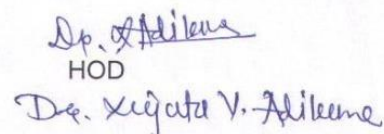 Dr. S Adikane
HOD
Dr. Sujata V. Adikane